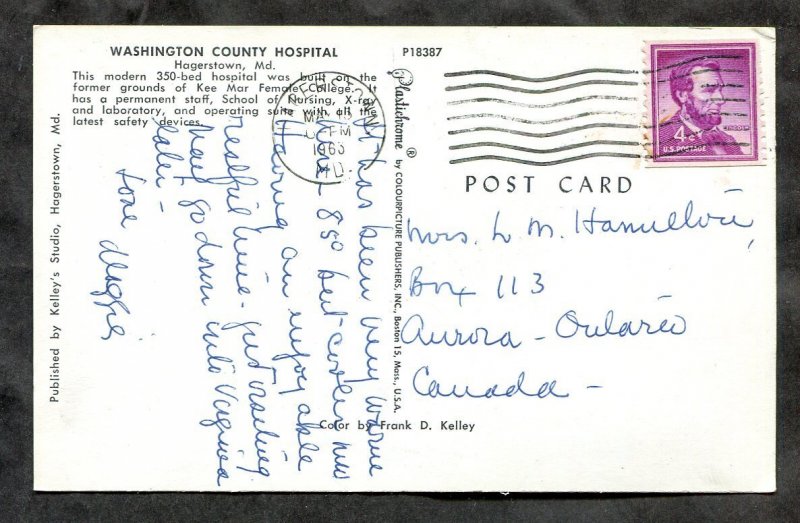 WASHINGTON COUNTY HOSPITAL
Hagerstown, Md.
This modern 350-bed hospital was built on the
former grounds of Kee Mar Female College. It
has a permanent staff, School of Nursing, X-ray
and laboratory, and operating suite with all the
latest safety devices.
P18387
Published by Kelley's Studio, Hagerstown, Md.
Plastichrome ® by COLOURPICTURE PUBLISHERS, INC., Boston 15, Mass., U.S.A.
1963
MD.
PM
4¢
U.S. POSTAGE
POST CARD
It has been very warm
- 85° but cooler now
Having an enjoyable
restful time - just visiting
May go down into Virginia
later -
Love Maggie
Mrs. L. M. Hamilton,
Box 113
Aurora - Ontario
Canada -
Color by Frank D. Kelley